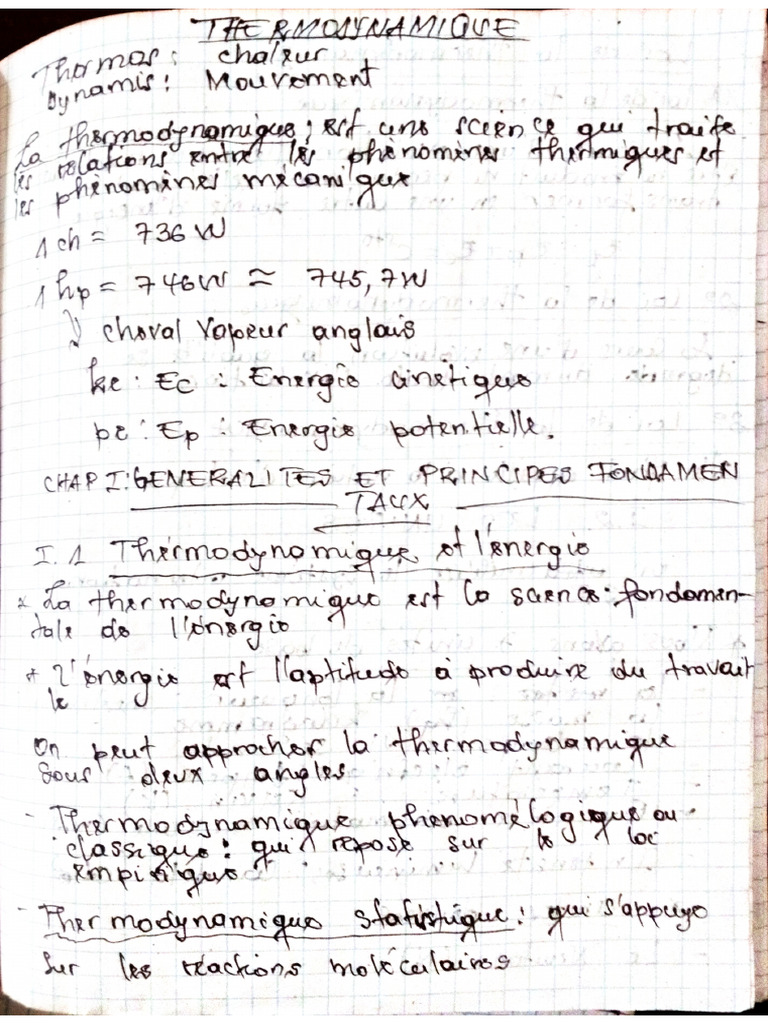 THERMODYNAMIQUE
Thermos : chaleur
Dynamis : Mouvement
La thermodynamique ; est une science qui traite
les relations entre les phénomènes thermiques et
les phénomènes mécanique
1 ch = 736 W
1 hp = 746 W ≈ 745,7 W
↓ cheval vapeur anglais
ke : Ec : Energie cinetique
pe : Ep : Energie potentielle.
CHAP I: GENERALITES ET PRINCIPES FONDAMEN
TAUX
I.1 Thérmodynamique et l'énergie
* La thermodynamique est la science fondamen-
tale de l'énergie
* L'énergie est l'aptitude à produire du travail
On peut approcher la thermodynamique
Sous deux angles
- Thermodynamique phenomélogique ou
classique : qui repose sur la loi
empirique
- Thermodynamique statistique : qui s'appuye
Sur les réactions moléculaires